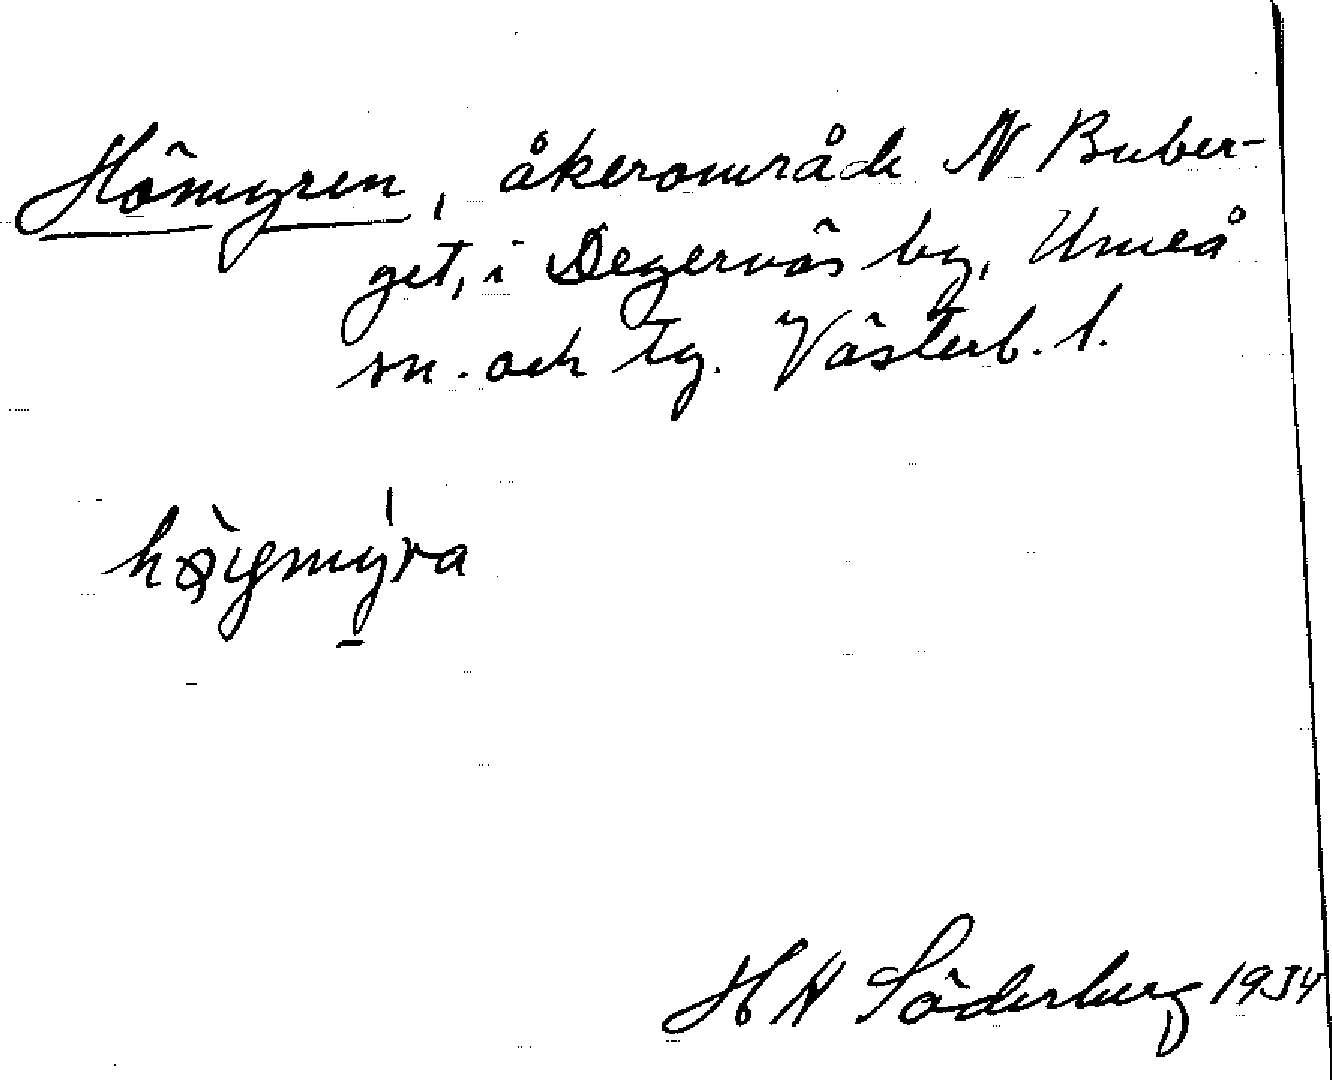 Hömyren, åkerområde N Buber-
get, i Degernäs by, Umeå
sn. och tg. Västerb. l.
H N Söderberg 1934